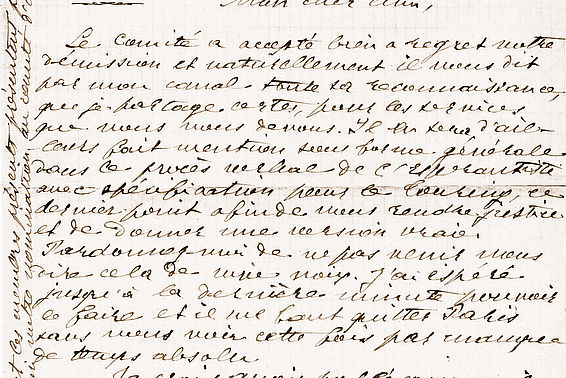 Mon cher ami,
Le Comité a accepté bien a regret votre
démission et naturellement il vous dit
par mon canal toute sa reconnaissance,
que je partage certes, pour les services
que nous vous devons. Il en sera d'ail-
leurs fait mention sous forme générale
dans le procès verbal de l'Esperantiste
avec spécification pour le Touring, ce
dernier point afin de vous rendre justice
et de donner une version vraie.
Pardonnez-moi de ne pas venir vous
dire cela de vive voix. J'ai espéré
jusqu'à la dernière minute pouvoir
le faire et il me faut quitter Paris
sans vous voir cette fois par manque
de temps absolu.